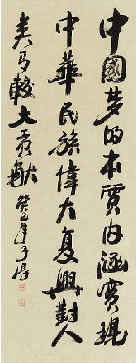 中國夢的本質内涵實現
中華民族偉大复興對人
类有較大貢獻 癸巳年